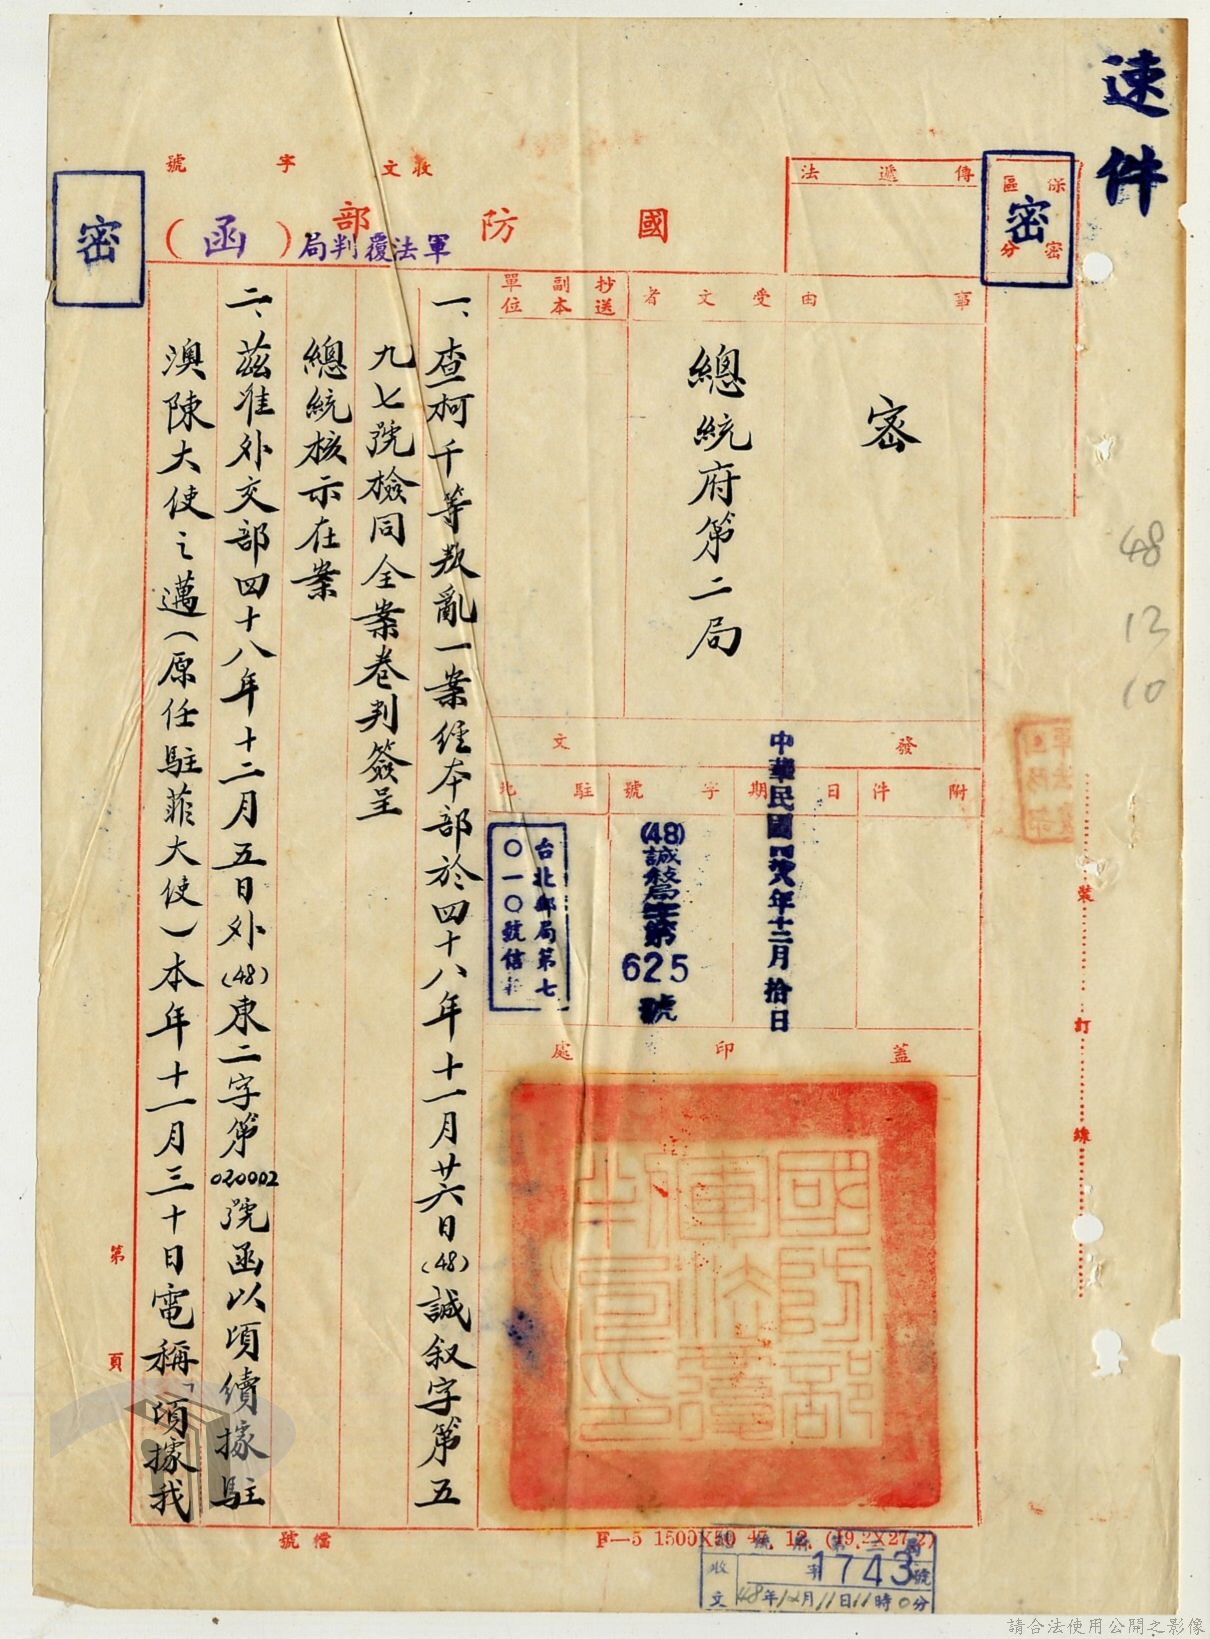 速件
保密區分
密
密
傳遞法
收文 字 號
國防部
軍法覆判局(函)
事由
受文者
抄送副本單位
密
總統府第二局
48
12
10
發文
附件
日期
字號
駐地
中華民國四拾八年十二月拾日
(48)誠敘局字第625號
台北郵局第七〇一〇號信箱
蓋印處
國防部軍法覆判局印
一、查柯千等叛亂一案經本部於四十八年十一月廿六日(48)誠叙字第五
九七號檢同全案卷判簽呈
總統核示在案
二、茲准外交部四十八年十二月五日外(48)東二字第020002號函以頃續據駐
澳陳大使之邁(原任駐菲大使)本年十一月三十日電稱「頃據我
裝
訂
線
第 頁
檔號
F—5 1500X50 47. 12. (19.2X27.2)
總統府第二局
收文 字1743號
48年12月11日11時0分
請合法使用公開之影像